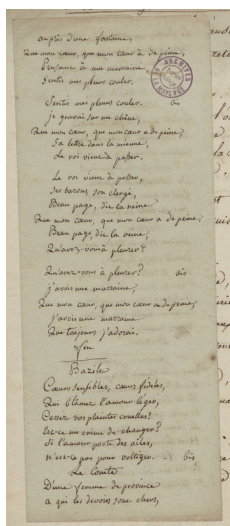 auprès d'une fontaine,
Que mon cœur, que mon cœur a de peine,
Pensant à ma marraine
Sentis mes pleurs couler.
Sentis mes pleurs couler. bis
je gravai sur un chêne,
Que mon cœur, que mon cœur a de peine,
Sa lettre sans la mienne,
Le roi vint à passer.
Le roi vint à passer,
ses barons, son clergé,
Beau page, dit la reine
Que mon cœur, que mon cœur a de peine,
Beau page, dit la reine,
Qu'avez-vous à pleurer?
Qu'avez-vous à pleurer? bis
j'avois une marraine,
Que mon cœur, que mon cœur a de peine,
j'avois une marraine
Que toujours j'adorai.
fin
Bazile
Cœurs sensibles, cœurs fideles,
Qui blamez l'amour leger,
Cessez vos plaintes cruelles!
Est-ce un crime de changer?
Si l'amour porte des ailes,
n'est-ce pas pour voltiger. bis
Le Comte
D'une femme de province
a qui ses devoirs sont chers,
ARCHIVES